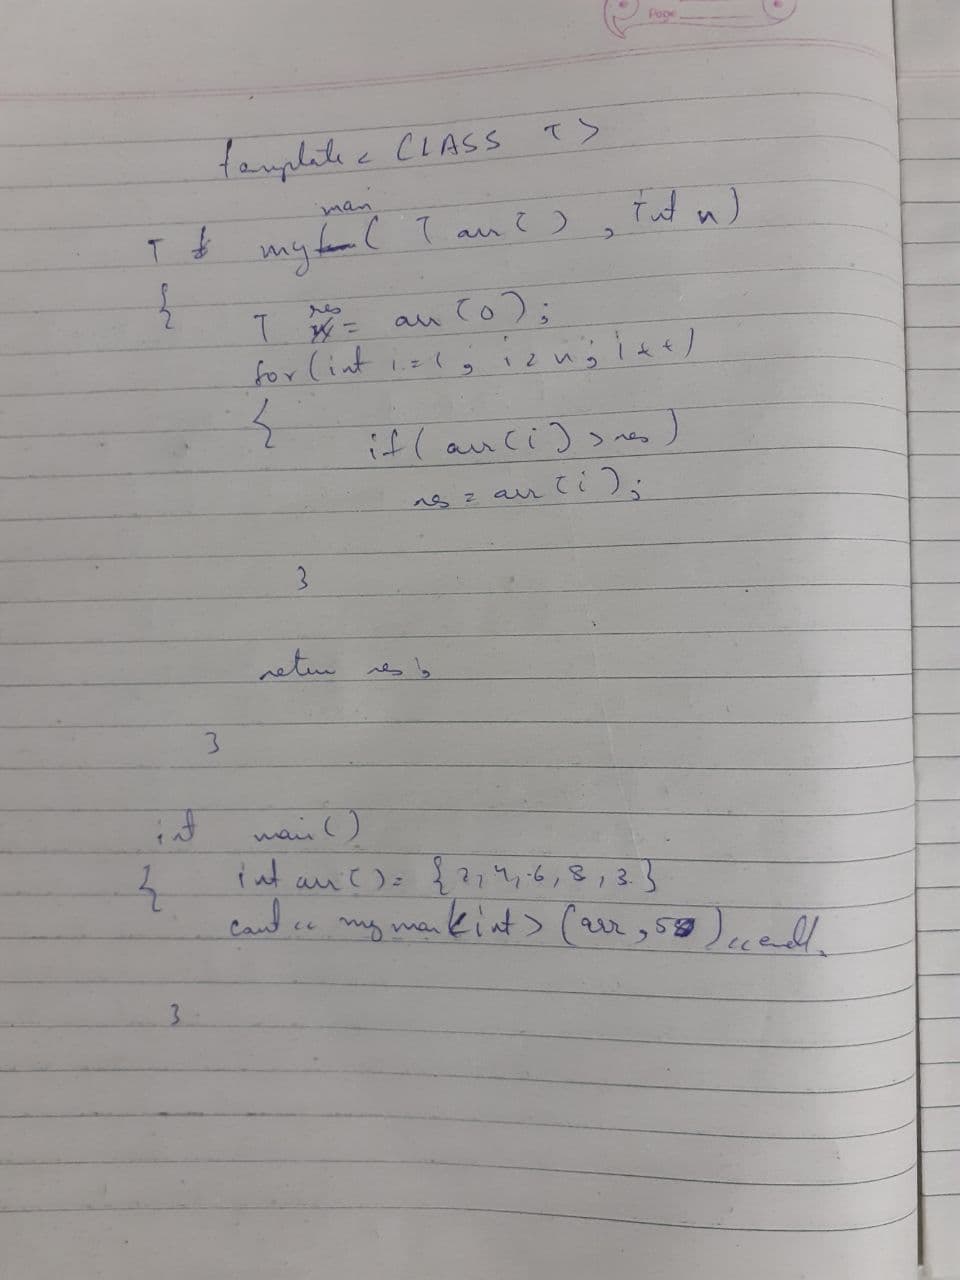 Page
template < CLASS T >
man
T my ( T arr [ ] , int n )
{
res
T = arr [0];
for (int i=1; i<n; i++)
{
if ( arr [i] > res )
res = arr [i];
}
return res;
}
int main()
{ int arr[] = {2, 4, 6, 8, 3}
cout << myman <int> (arr, 5) << endl;
}